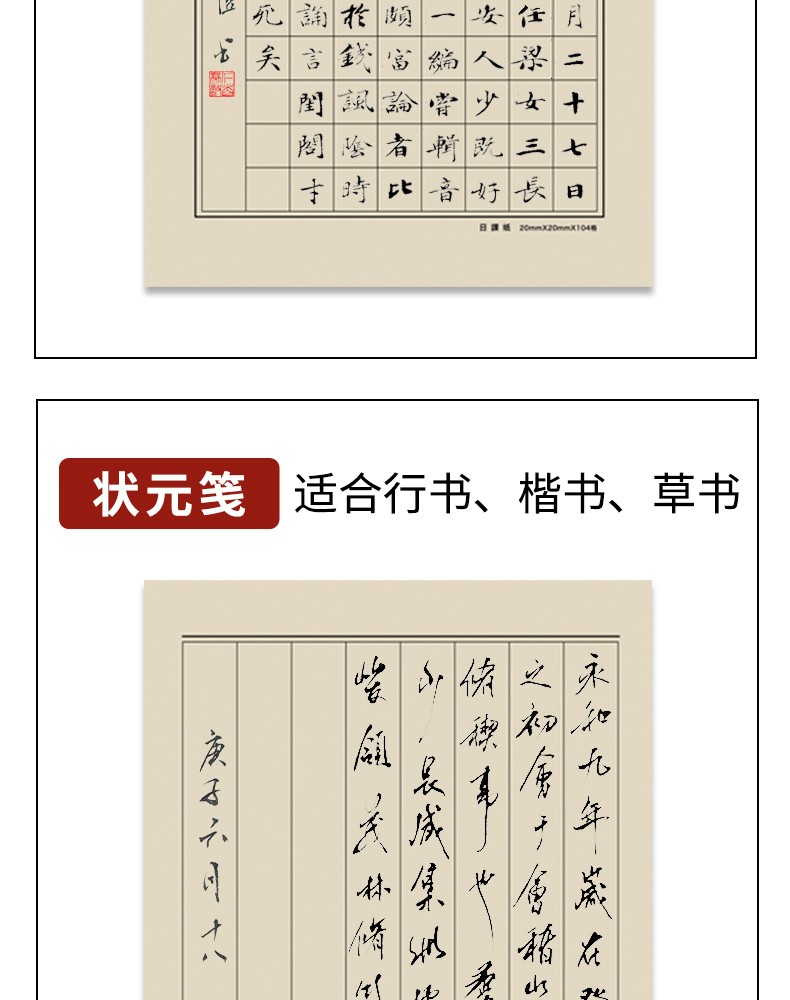 月二十七日
任梁女三長
安人少既好
一編嘗輯音
頗富論者比
於錢諷陰時
誦言閨閣才
死矣
日課纸 20mmX20mmX104格
状元笺 适合行书、楷书、草书
永和九年歲在癸
之初會于會稽山
脩禊事也羣
少長咸集此地
峻領茂林脩竹
庚子六月十八